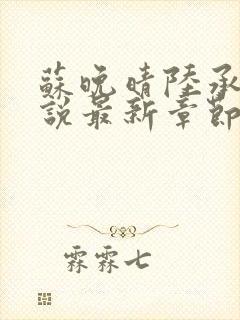 蘇晚晴陸承
說最新章節
霖霖七